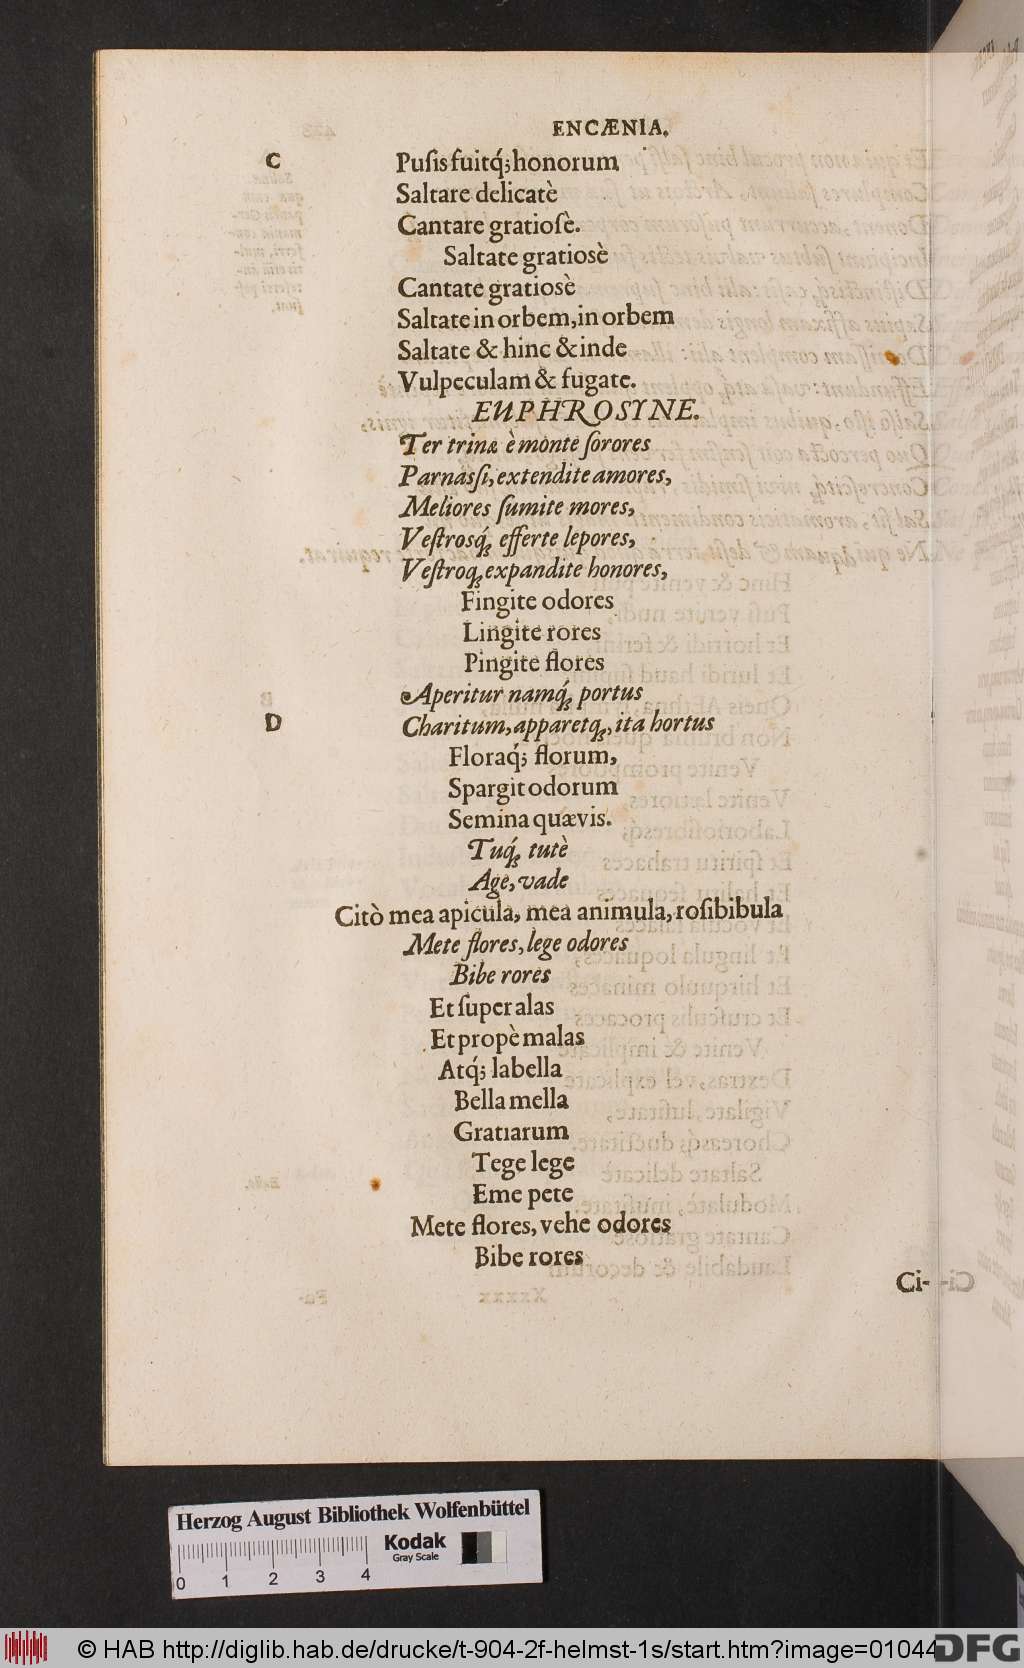 ENCÆNIA.
C
Puſis fuitq́; honorum
Saltare delicatè
Cantare gratioſè.
Saltate gratiosè
Cantate gratiosè
Saltate in orbem, in orbem
Saltate & hinc & inde
Vulpeculam & fugate.
EUPHROSYNE.
Ter trinæ è monte ſorores
Parnasſi, extendite amores,
Meliores ſumite mores,
Veſtrosq́; efferte lepores,
Veſtroq; expandite honores,
Fingite odores
Lingite rores
Pingite flores
Aperitur namq́; portus
D
Charitum, apparetq;, ita hortus
Floraq́; florum,
Spargit odorum
Semina quævis.
Tuq́; tutè
Age, vade
Citò mea apicula, mea animula, roſibibula
Mete flores, lege odores
Bibe rores
Et ſuper alas
Et propè malas
Atq́; labella
Bella mella
Gratiarum
Tege lege
Eme pete
Mete flores, vehe odores
Bibe rores
Ci-
Herzog August Bibliothek Wolfenbüttel
Kodak
Gray Scale
0 1 2 3 4
© HAB http://diglib.hab.de/drucke/t-904-2f-helmst-1s/start.htm?image=01044
DFG